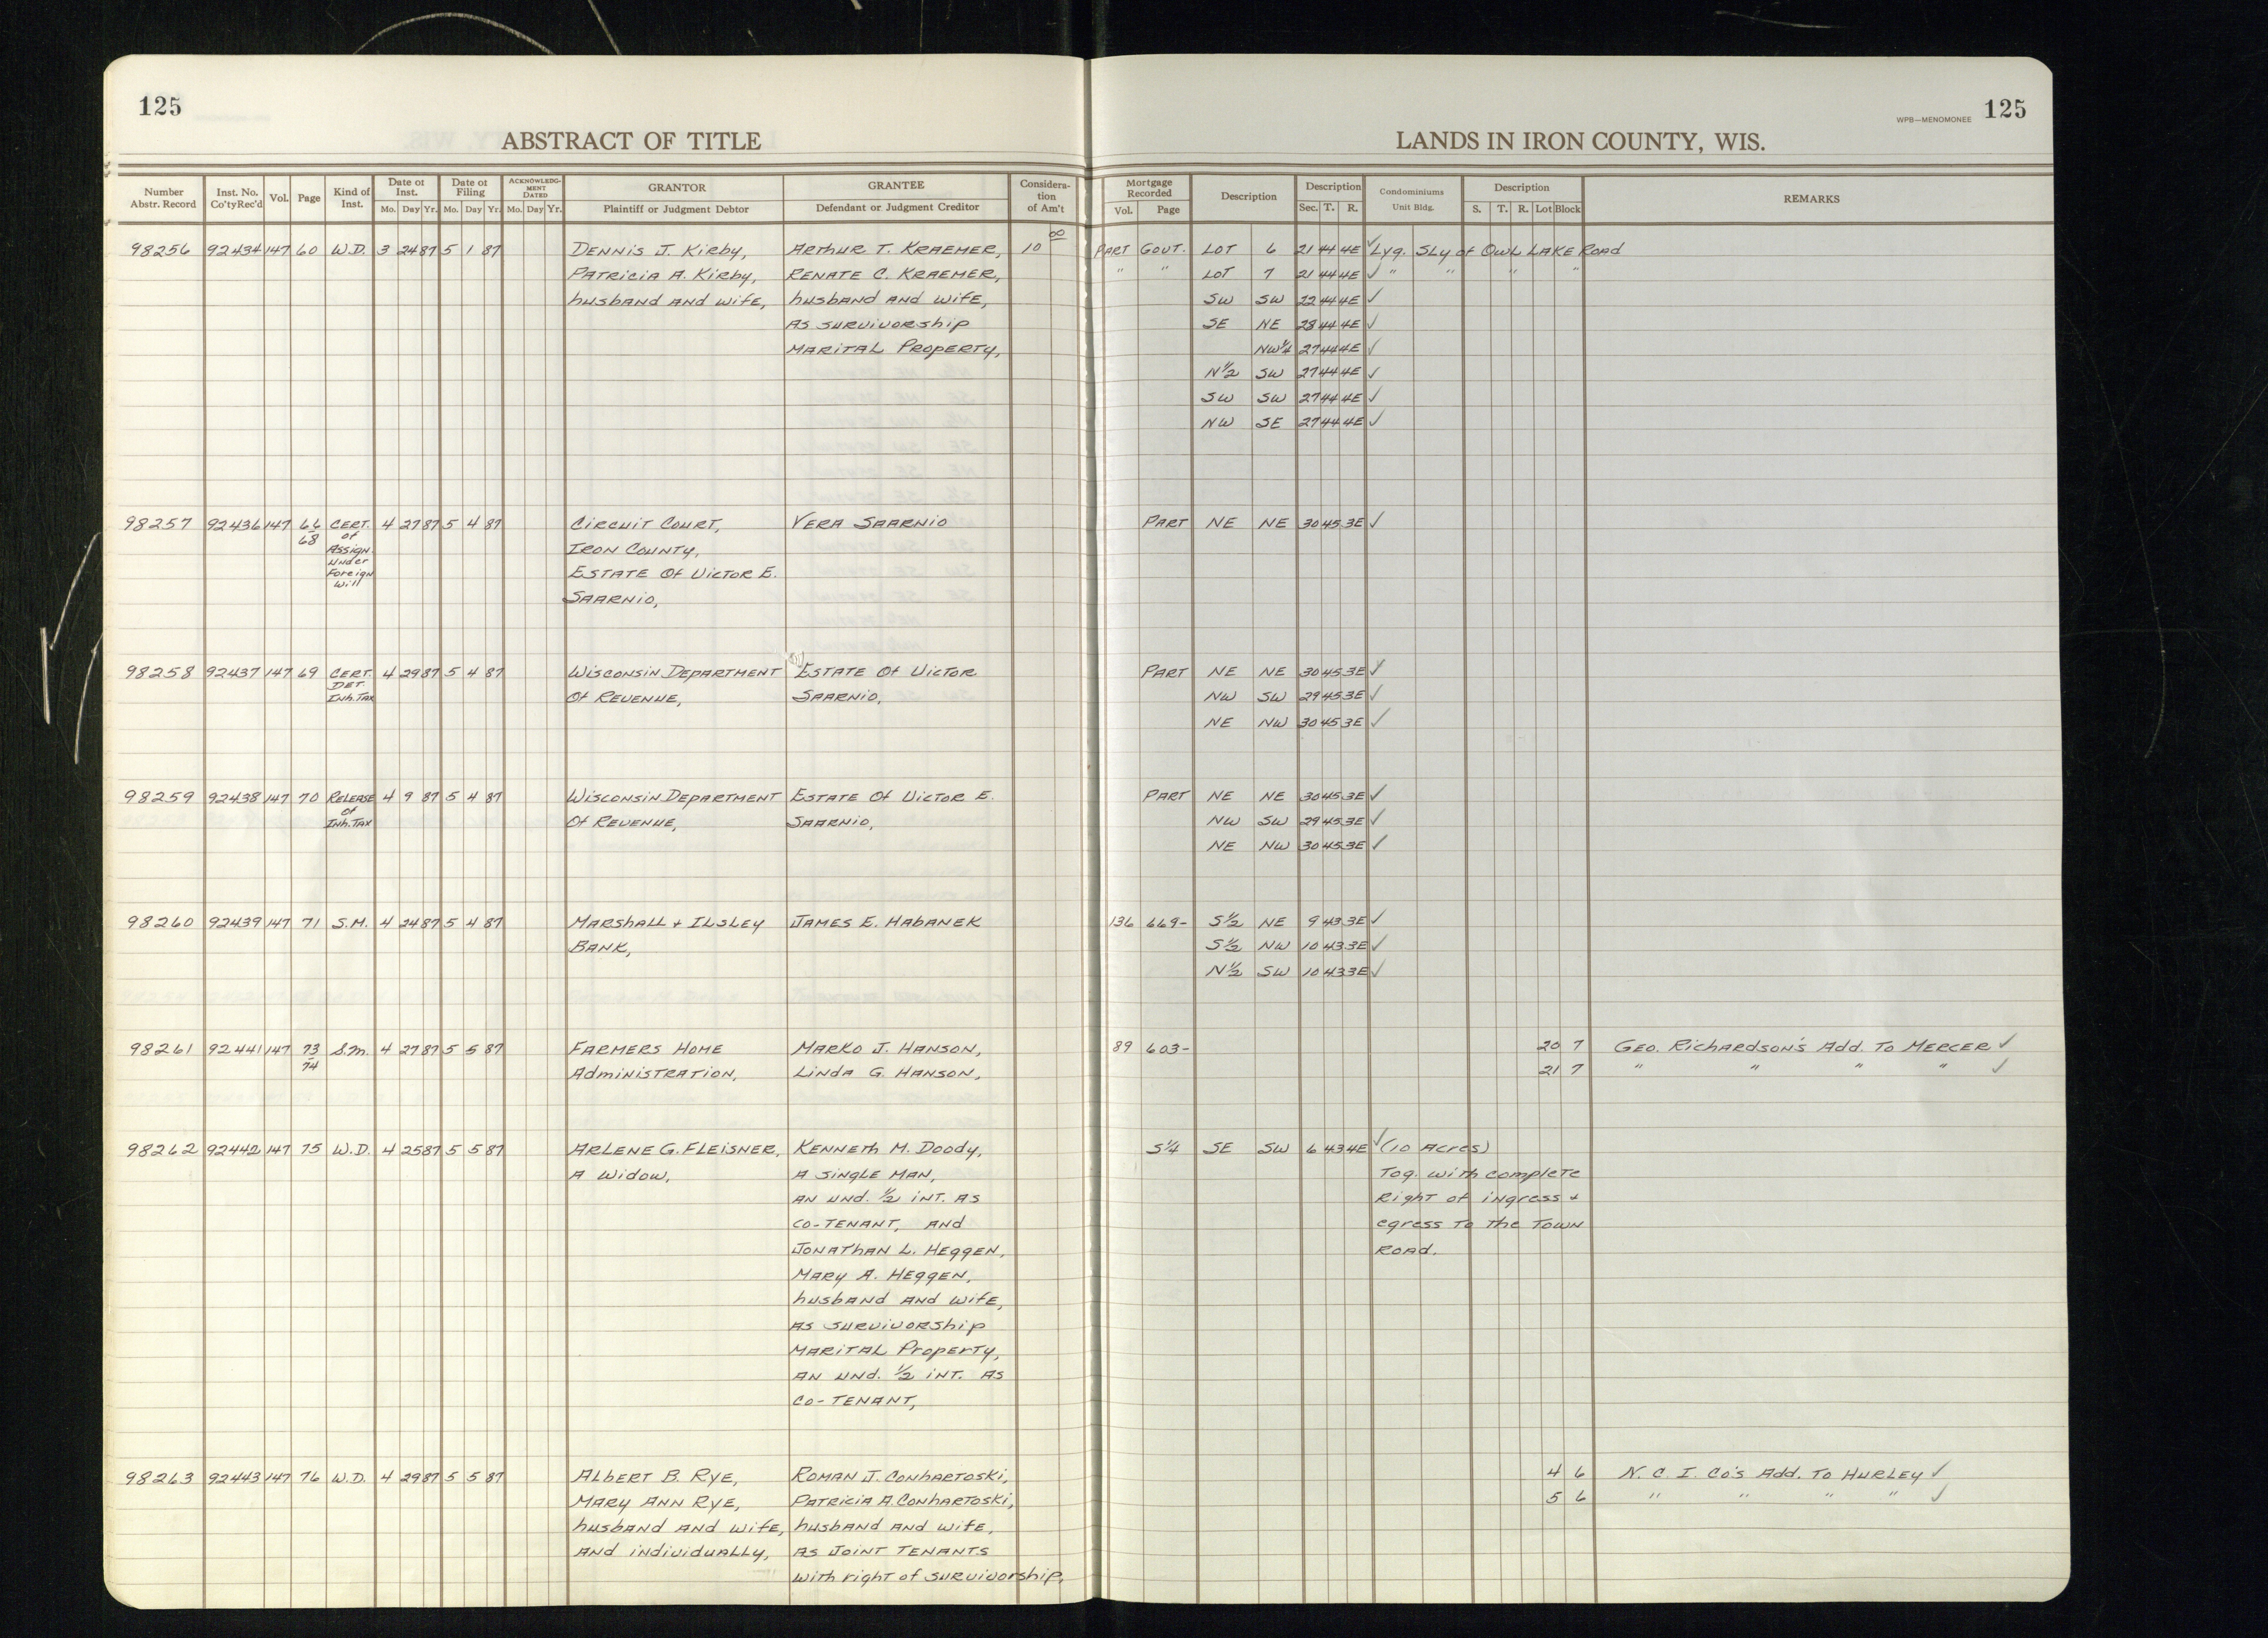 125
125
WPB—MENOMONEE
ABSTRACT OF TITLE
LANDS IN IRON COUNTY, WIS.
Number Abstr. Record | Inst. No. Co'ty Rec'd | Vol. | Page | Kind of Inst. | Date of Inst. Mo. Day Yr. | Date of Filing Mo. Day Yr. | ACKNOWLEDGMENT DATED Mo. Day Yr. | GRANTOR Plaintiff or Judgment Debtor | GRANTEE Defendant or Judgment Creditor | Consideration of Am't | Mortgage Recorded Vol. Page | Description | Description Sec. T. R. | Condominiums Unit Bldg. | Description S. T. R. Lot Block | REMARKS
98256 92434 147 60 W.D. 3 24 87 5 1 87 Dennis J. Kirby, Arthur T. Kraemer, 10 00 Part Govt. Lot 6 21 44 4E ✓ Lyg. Sly of Owl Lake Road
Patricia A. Kirby, Renate C. Kraemer, " " Lot 7 21 44 4E ✓ " " " "
husband and wife, husband and wife, SW SW 22 44 4E ✓
as survivorship SE NE 28 44 4E ✓
Marital Property, NW¼ 27 44 4E ✓
N½ SW 27 44 4E ✓
SW SW 27 44 4E ✓
NW SE 27 44 4E ✓
98257 92436 147 66 68 Cert. of Assign. Under Foreign Will 4 27 87 5 4 87 Circuit Court, Vera Saarnio Part NE NE 30 45 3E ✓
Iron County,
Estate of Victor E.
Saarnio,
98258 92437 147 69 Cert. Det. Inh. Tax 4 29 87 5 4 87 Wisconsin Department Estate of Victor Part NE NE 30 45 3E ✓
of Revenue, Saarnio, NW SW 29 45 3E ✓
NE NW 30 45 3E ✓
98259 92438 147 70 Release of Inh. Tax 4 9 87 5 4 87 Wisconsin Department Estate of Victor E. Part NE NE 30 45 3E ✓
of Revenue, Saarnio, NW SW 29 45 3E ✓
NE NW 30 45 3E ✓
98260 92439 147 71 S.M. 4 24 87 5 4 87 Marshall + Ilsley James E. Habanek 136 669- S½ NE 9 43 3E ✓
Bank, S½ NW 10 43 3E ✓
N½ SW 10 43 3E ✓
98261 92441 147 73 74 S.M. 4 27 87 5 5 87 Farmers Home Marko J. Hanson, 89 603- 20 7 Geo. Richardson's Add. To Mercer ✓
Administration, Linda G. Hanson, 21 7 " " " " ✓
98262 92442 147 75 W.D. 4 25 87 5 5 87 Arlene G. Fleisner, Kenneth M. Doody, S¼ SE SW 6 43 4E ✓ (10 Acres)
a widow, a single man, Tog. with complete
an und. ½ int. as Right of ingress +
co-tenant, and egress to the Town
Jonathan L. Heggen, Road.
Mary A. Heggen,
husband and wife,
as survivorship
Marital Property,
an und. ½ int. as
co-tenant,
98263 92443 147 76 W.D. 4 29 87 5 5 87 Albert B. Rye, Roman J. Conhartoski, 4 6 N. C. I. Co's Add. To Hurley ✓
Mary Ann Rye, Patricia A. Conhartoski, 5 6 " " " " ✓
husband and wife, husband and wife,
and individually, as joint tenants
with right of survivorship,